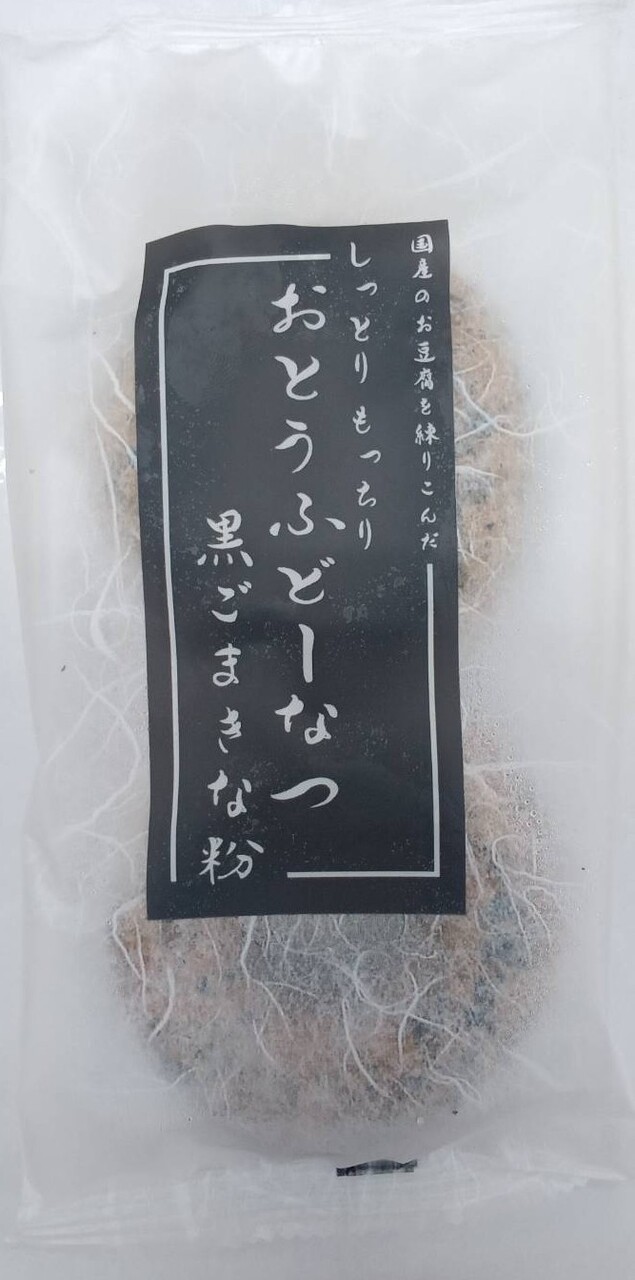 国産のお豆腐を練りこんだ
しっとりもっちり
おとうふどーなつ
黒ごまきな粉